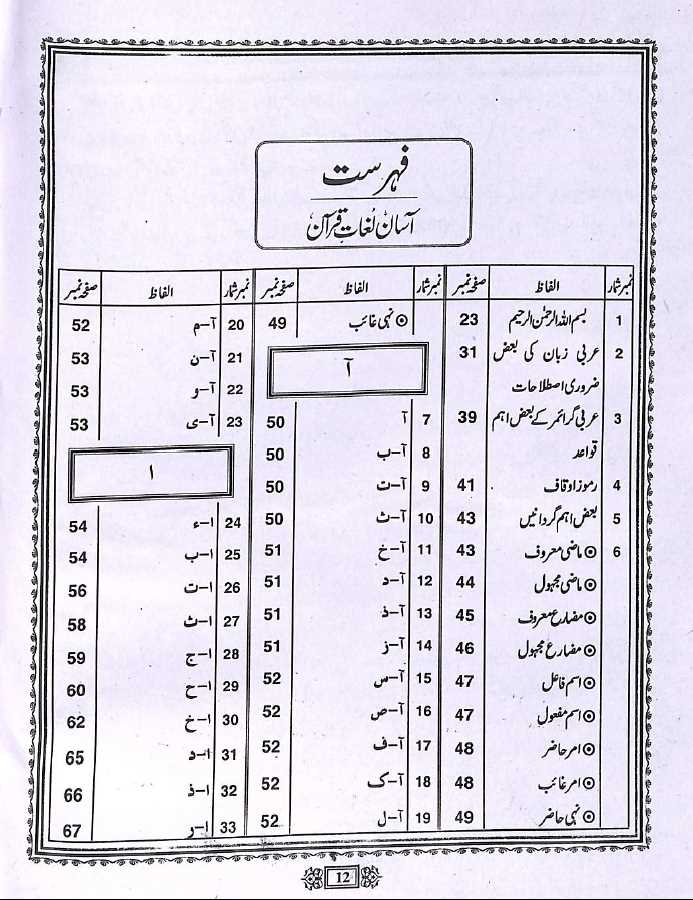 فہرست
آسان لُغاتِ قرآن
نمبر شمار الفاظ صفحہ نمبر
1 بسم اللہ الرحمٰن الرحیم 23
2 عربی زبان کی بعض 31
ضروری اصطلاحات
3 عربی گرائمر کے بعض اہم 39
قواعد
4 رموز اوقاف 41
5 بعض اہم گردانیں 43
6 ⊙ ماضی معروف 43
⊙ ماضی مجہول 44
⊙ مضارع معروف 45
⊙ مضارع مجہول 46
⊙ اسم فاعل 47
⊙ اسم مفعول 47
⊙ امر حاضر 48
⊙ امر غائب 48
⊙ نہی حاضر 49
نمبر شمار الفاظ صفحہ نمبر
⊙ نہی غائب 49
آ
7 آ 50
8 آ–ب 50
9 آ–ت 50
10 آ–ث 50
11 آ–خ 51
12 آ–د 51
13 آ–ذ 51
14 آ–ز 51
15 آ–س 52
16 آ–ص 52
17 آ–ف 52
18 آ–ک 52
19 آ–ل 52
نمبر شمار الفاظ صفحہ نمبر
20 آ–م 52
21 آ–ن 53
22 آ–و 53
23 آ–ی 53
ا
24 ا–ء 54
25 ا–ب 54
26 ا–ت 56
27 ا–ث 58
28 ا–ج 59
29 ا–ح 60
30 ا–خ 62
31 ا–د 65
32 ا–ذ 66
33 ا–ر 67
12